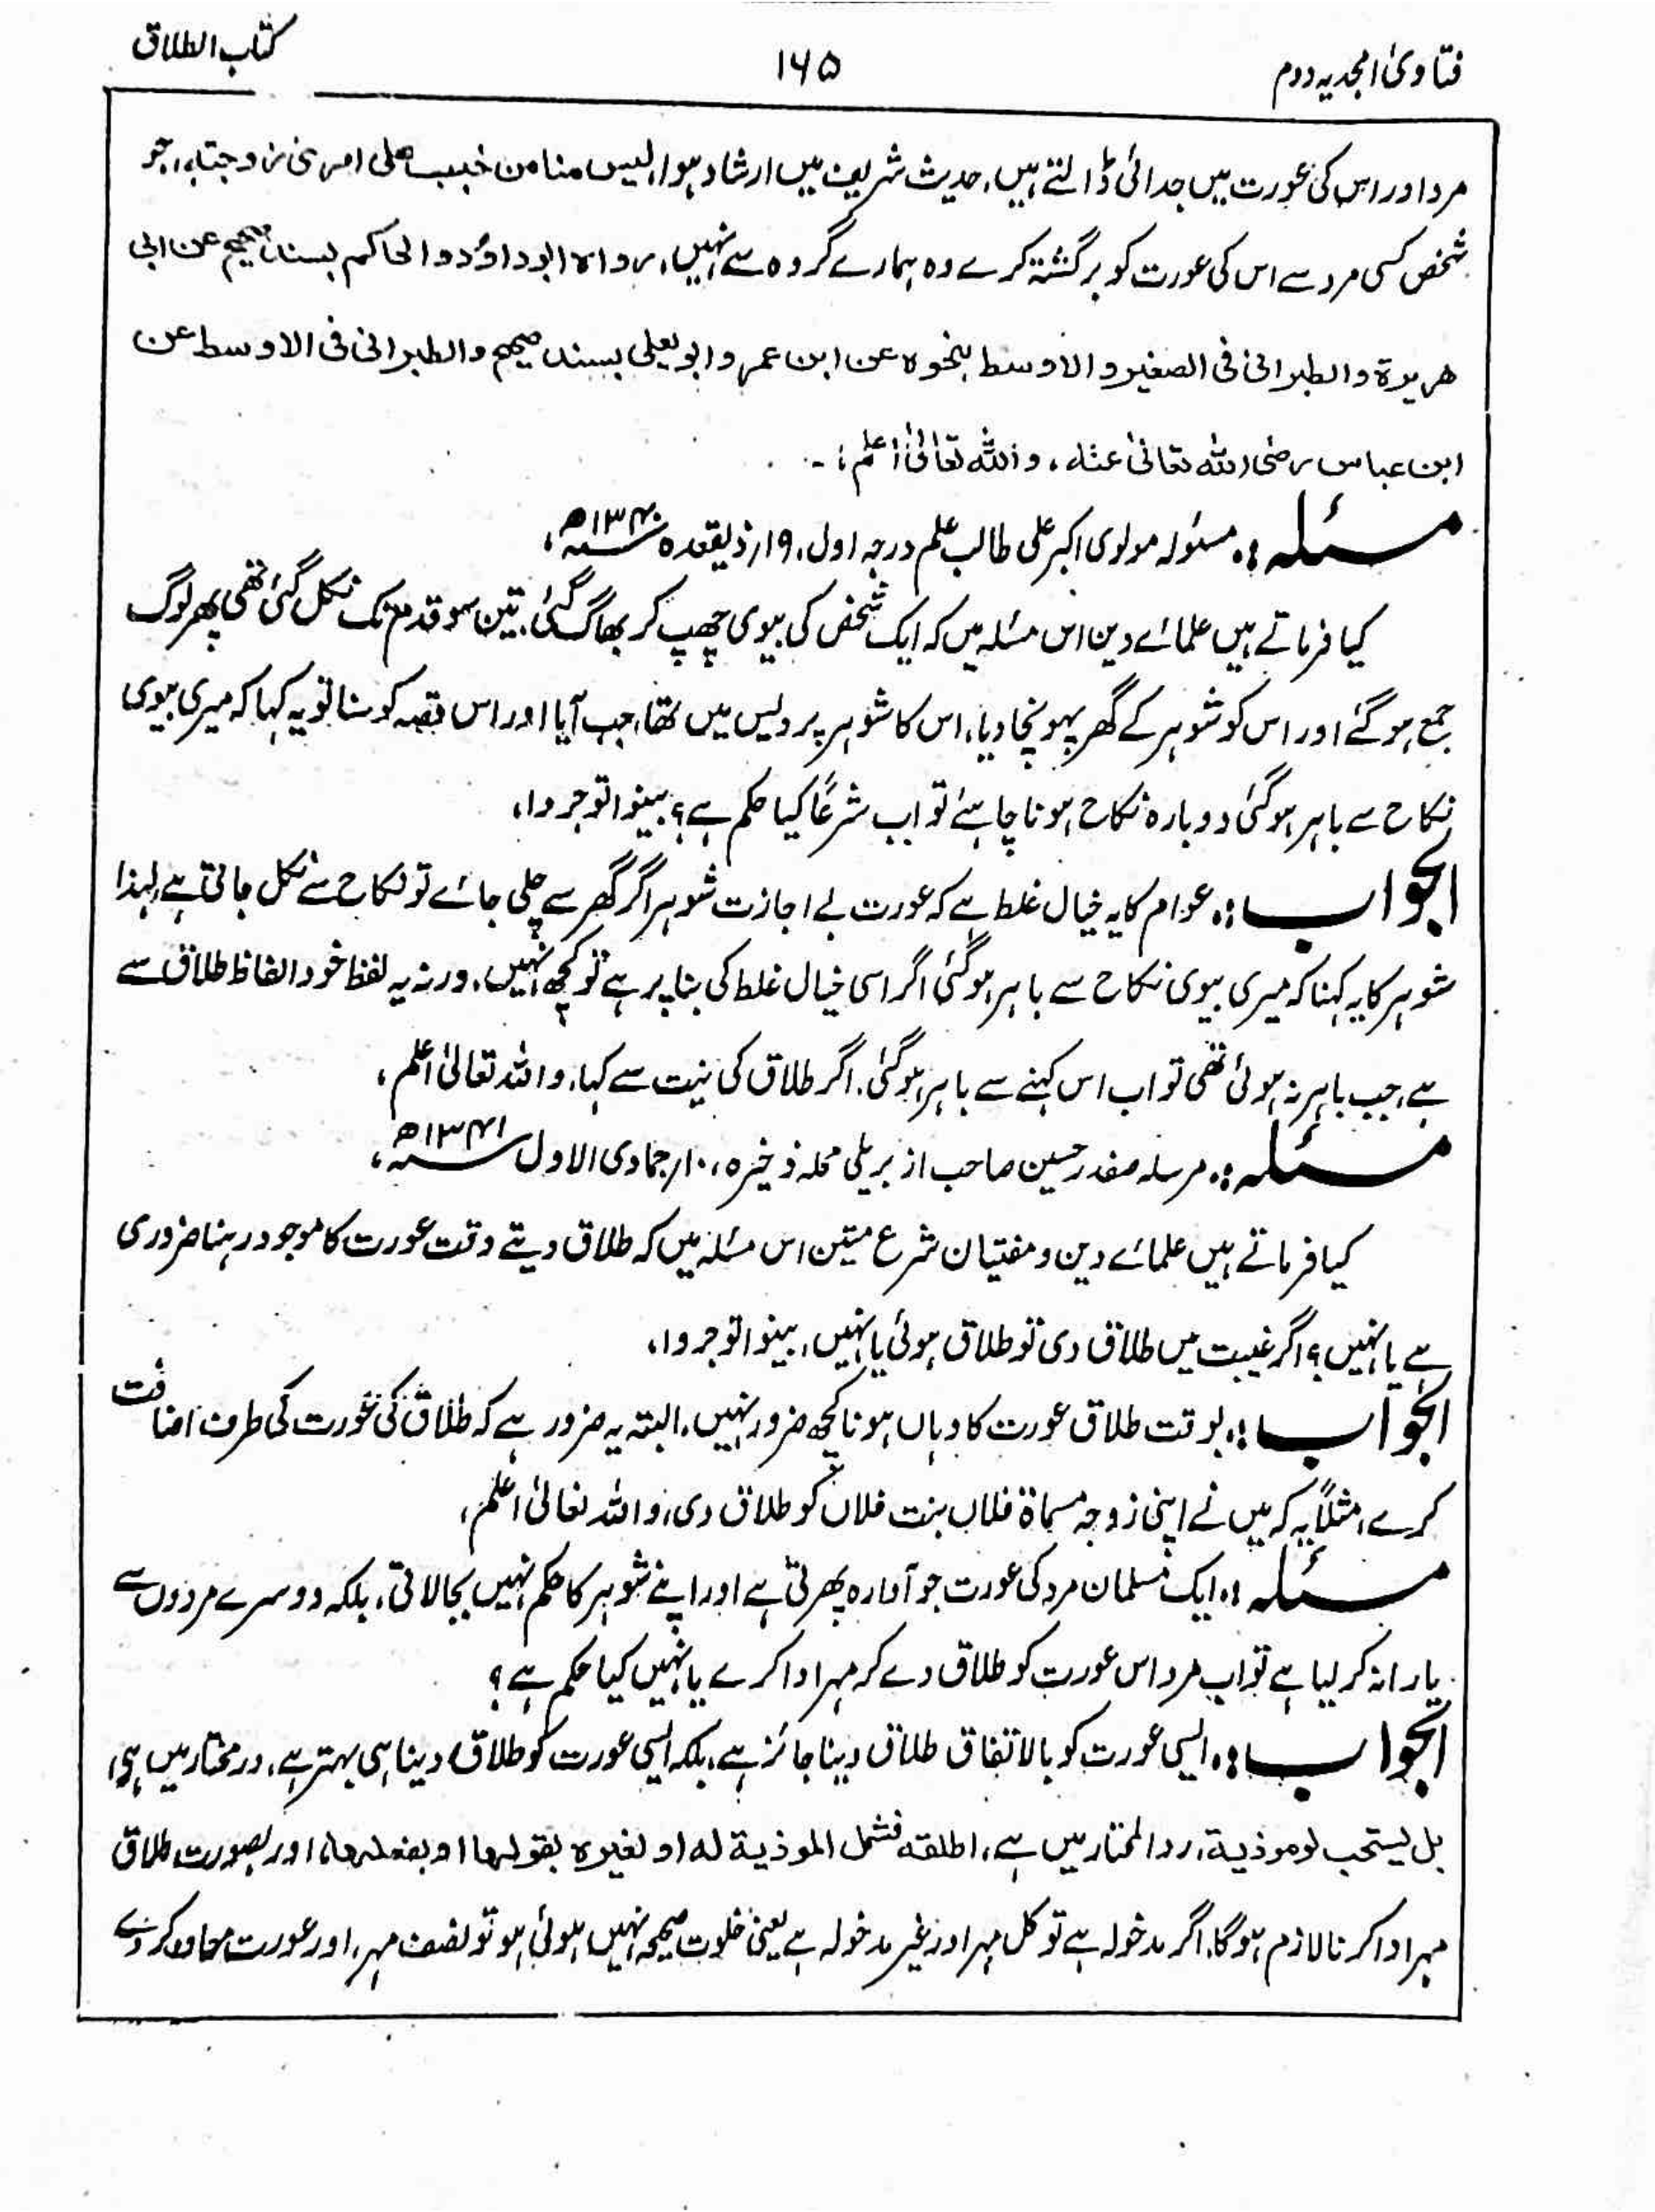 فتاویٰ امجدیہ دوم ۱۶۵ کتاب الطلاق
مرد اور اس کی عورت میں جدائی ڈالتے ہیں، حدیث شریف میں ارشاد ہوا، لیس منا من خبب علی امرئ زوجتہ، جو
شخص کسی مرد سے اس کی عورت کو برگشتہ کرے وہ ہمارے گروہ سے نہیں، رواہ ابوداؤد والحاکم بسند صحیح عن ابی
ھریرۃ والطبرانی فی الصغیر والاوسط بنحوہ عن ابن عمر وابویعلی بسند صحیح والطبرانی فی الاوسط عن
ابن عباس رضی اللہ تعالیٰ عنہ، واللہ تعالیٰ اعلم؛۔
مسئلہ:۔ مسئولہ مولوی اکبر علی طالب علم درجہ اول، ۱۹؍ذیقعدہ ۱۳۴۰ھ،
کیا فرماتے ہیں علمائے دین اس مسئلہ میں کہ ایک شخص کی بیوی چھپ کر بھاگ گئی، تین سو قدم تک نکل گئی تھی پھر لوگ
جمع ہوگئے اور اس کو شوہر کے گھر پہونچا دیا، اس کا شوہر پردیس میں تھا، جب آیا اور اس قصہ کو سنا تو یہ کہا کہ میری بیوی
نکاح سے باہر ہوگئی دوبارہ نکاح ہونا چاہئے تو اب شرعًا کیا حکم ہے؟ بینوا توجروا،
الجواب:۔ عوام کا یہ خیال غلط ہے کہ عورت بے اجازت شوہر اگر گھر سے چلی جائے تو نکاح سے نکل جاتی ہے، لہذا
شوہر کا یہ کہنا کہ میری بیوی نکاح سے باہر ہوگئی اگر اسی خیال غلط کی بنا پر ہے تو کچھ نہیں، ورنہ یہ لفظ خود الفاظ طلاق سے
ہے، جب باہر نہ ہوئی تھی تو اب اس کہنے سے باہر ہوگئی، اگر طلاق کی نیت سے کہا، واللہ تعالیٰ اعلم،
مسئلہ:۔ مرسلہ صفدر حسین صاحب از بریلی محلہ ذخیرہ، ۱۰؍جمادی الاول ۱۳۴۱ھ،
کیا فرماتے ہیں علمائے دین ومفتیان شرع متین اس مسئلہ میں کہ طلاق دیتے وقت عورت کا موجود رہنا ضروری
ہے یا نہیں؟ اگر غیبت میں طلاق دی تو طلاق ہوئی یا نہیں، بینوا توجروا،
الجواب:۔ بوقت طلاق عورت کا وہاں ہونا کچھ ضرور نہیں، البتہ یہ ضرور ہے کہ طلاق کی عورت کی طرف اضافت
کرے، مثلًا یہ کہ میں نے اپنی زوجہ مسماۃ فلاں بنت فلاں کو طلاق دی، واللہ تعالیٰ اعلم،
مسئلہ:۔ ایک مسلمان مرد کی عورت جو آوارہ پھرتی ہے اور اپنے شوہر کا حکم نہیں بجالاتی، بلکہ دوسرے مردوں سے
یارانہ کرلیا ہے تو اب مرد اس عورت کو طلاق دے کر مہر ادا کرے یا نہیں کیا حکم ہے؟
الجواب:۔ ایسی عورت کو بالاتفاق طلاق دینا جائز ہے، بلکہ ایسی عورت کو طلاق دینا ہی بہتر ہے، درمختار میں ہے،
بل یستحب لو موذیۃ، ردالمحتار میں ہے، اطلقہ فشمل الموذیۃ لہ او لغیرہ بقولہا او بفعلہا، اور بصورت طلاق
مہر ادا کرنا لازم ہوگا، اگر مدخولہ ہے تو کل مہر اور غیر مدخولہ ہے یعنی خلوت صحیحہ نہیں ہوئی ہو تو نصف مہر، اور عورت معاف کردے